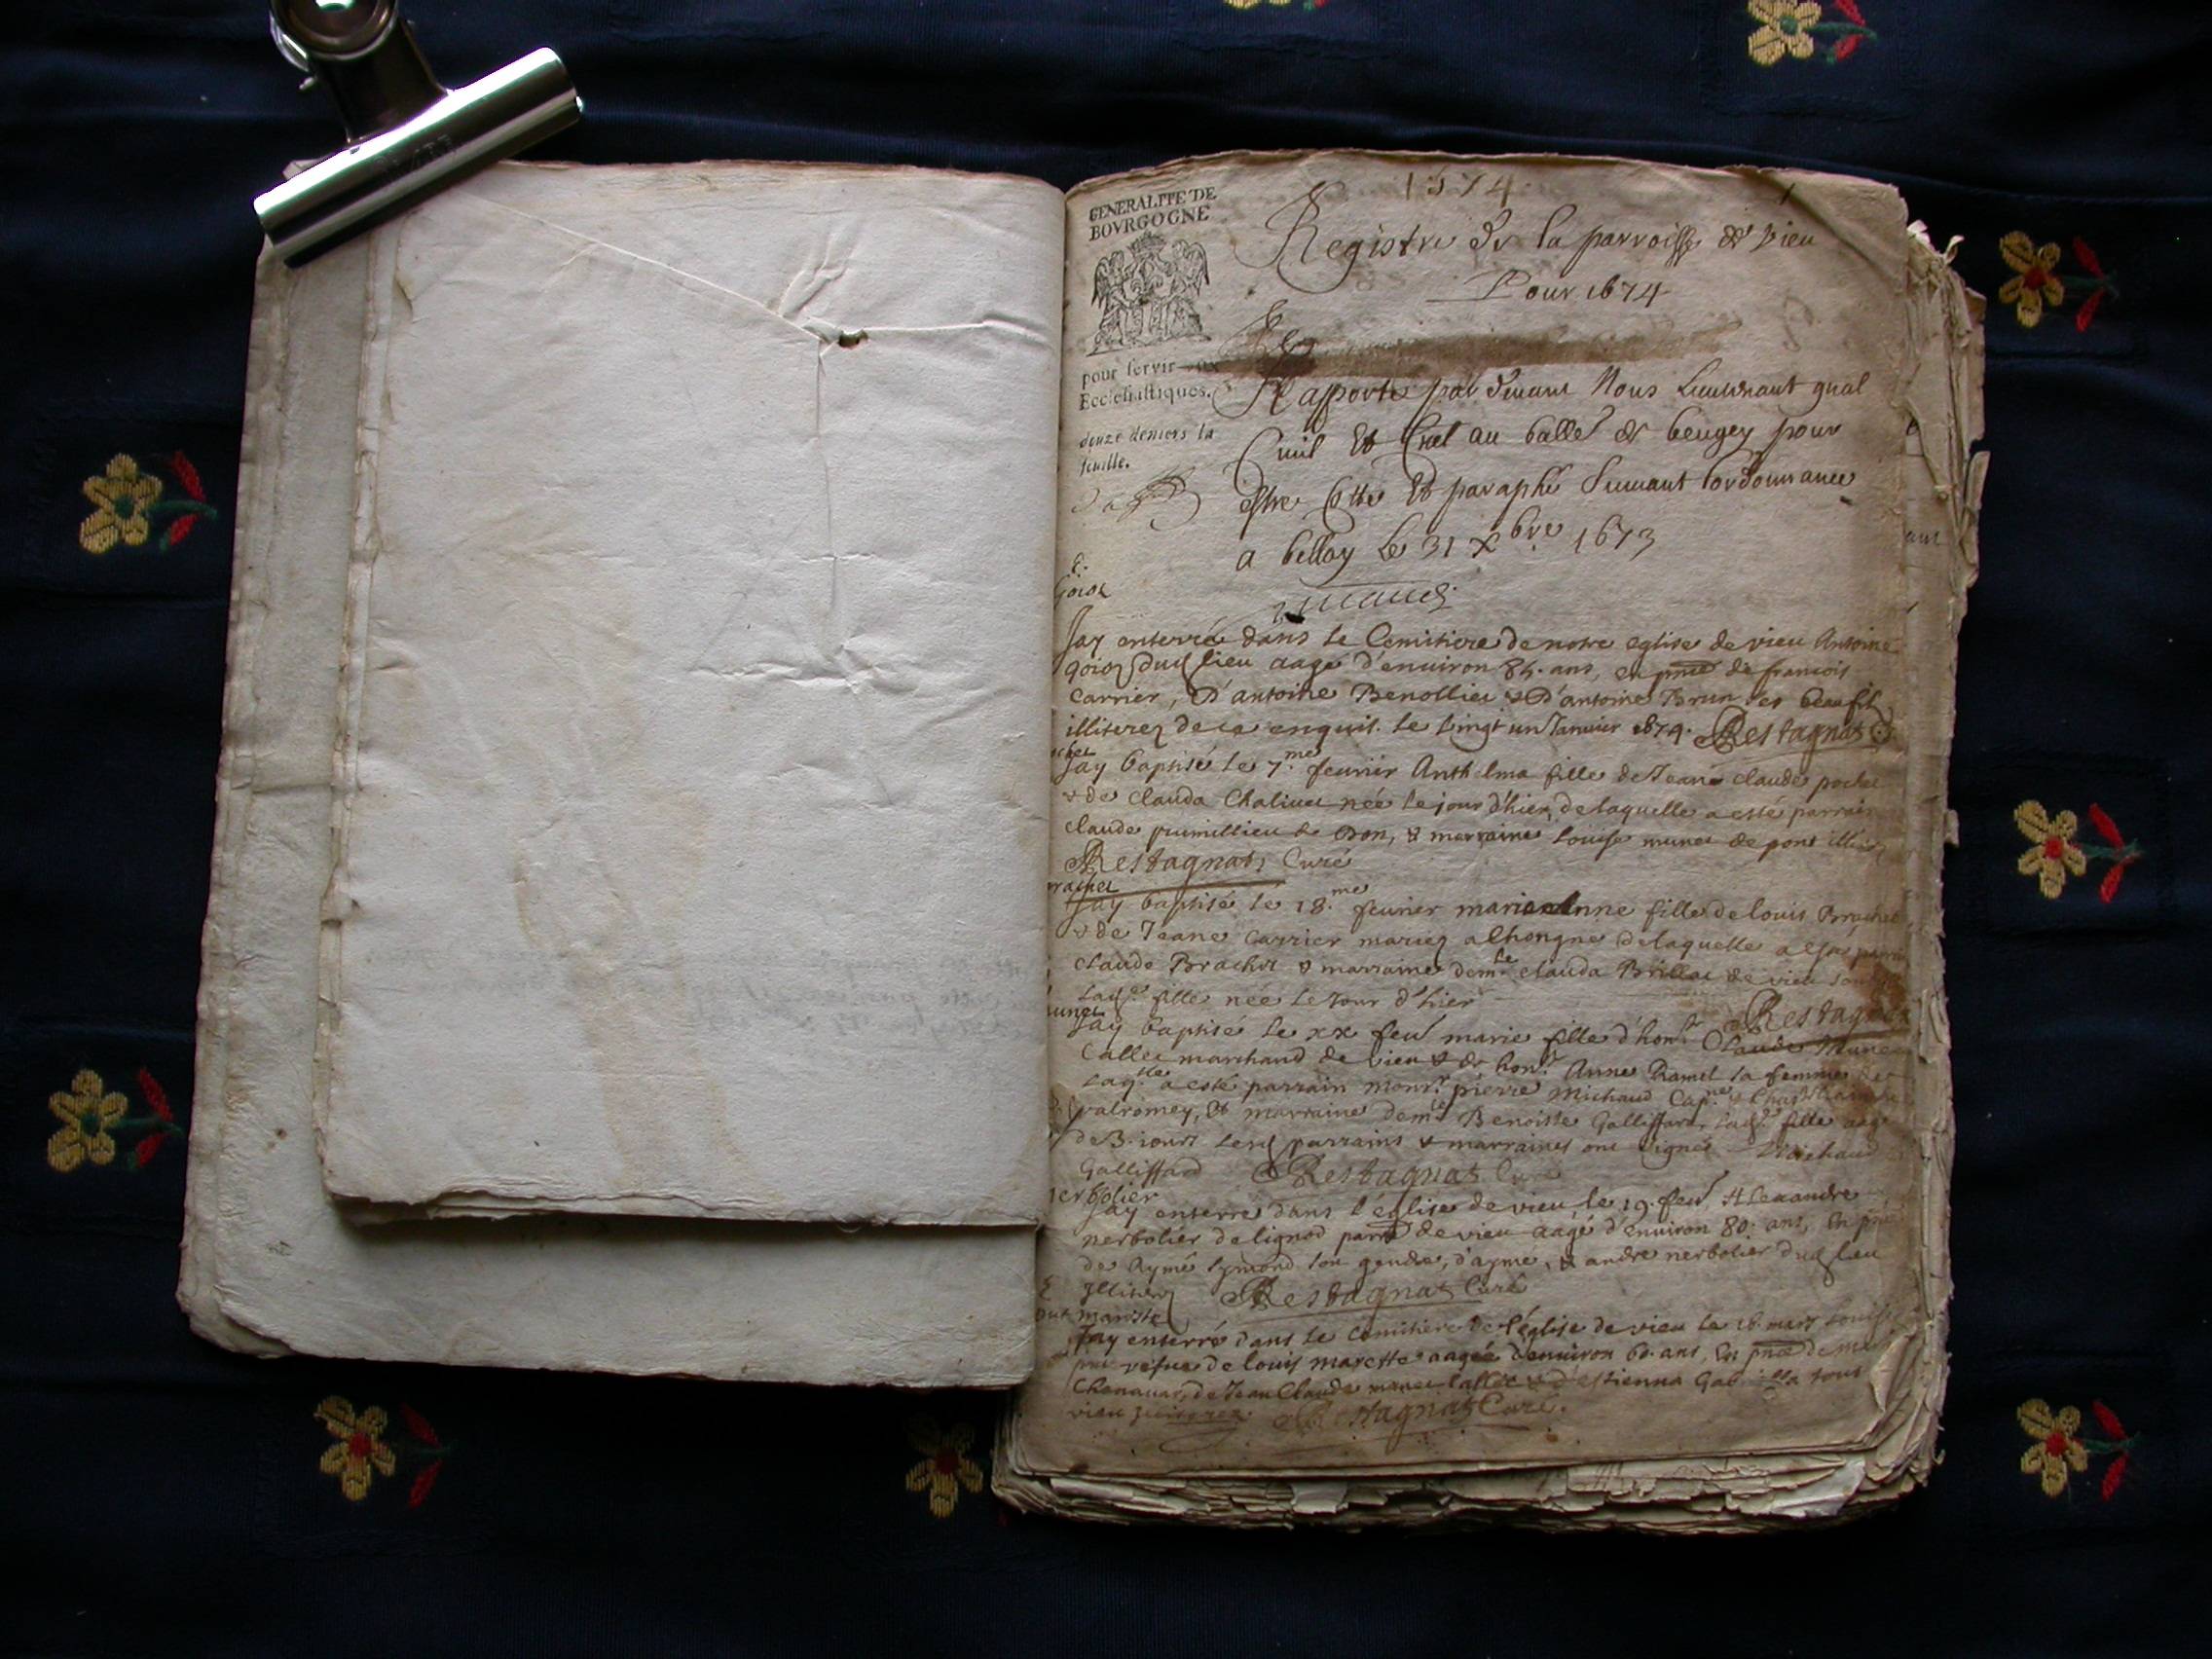 1674
GENERALITE DE
BOVRGOGNE
Registre de la parroisse de vieu
Pour 1674
pour servir aux
Ecclesiastiques.
douze deniers la
feuille.
Rapporté par devant Nous Lieutenant gnal
Civil Et Cnel au balle de beugey pour
estre Cotte Et paraphé Suivant lordonnance
a belley le 31 Xbre 1673
Goioz
Jay enterré dans le Cemitiere de notre eglise de vieu Antoine
goioz dud lieu aagé d'environ 85. ans, en pnce de francois
Carrier, D'antoine Benollieu & D'antoine Brun ses beaufilz
illiterez de ce enquis. le vingt un Janvier 1674. Restagnat
Jay baptisé le 7.me fevrier Anthelma fille de Jean claude pochet
& de Clauda Chalivet née le jour d'hier, de laquelle a esté parrain
claude prumillieu de Don, & marraine Louise munet de pont
Restagnat, Curé
Brachet
Jay baptisé le 18.me fevrier marianne fille de louis Brachet
& de Jeane Carrier mariez a lhongne de laquelle a esté
Claude Brachet & marraine demlle clauda Brillat de vieu
ladte fille née le Jour d'hier Restagnat
munet
Jay baptisé le xx fevr marie fille d'honr Claude Munet
Callet marchand de vieu & de honr Anne Ramel sa femme de
laqlle a esté parrain monsr pierre Michaud Capne & Chastelain
valromey, & marraine demlle Benoiste Galliffard, ladte fille aagée
de 3. iours lesd parrains & marraines ont signé Michaud
Galliffard Restagnat Curé
nerbolier
Jay enterré dans l'église de vieu, le 19. fevr Alexandre
nerbolier de lignod parr de vieu aagé d'environ 80. ans, En pnce
de Aymé Eymond son gendre, d'aymé, & andre nerbolier dud lieu
Illiterez Restagnat Curé
mariste
Jay enterré dans le Cemitiere de l'église de vieu le 16. mars Louise
vefue de louis marette aagée d'environ 60. ans, En pnce de
Chenavar, de Jean Claude munet Callet & d'Estienna tous
vieu Restagnat Curé.